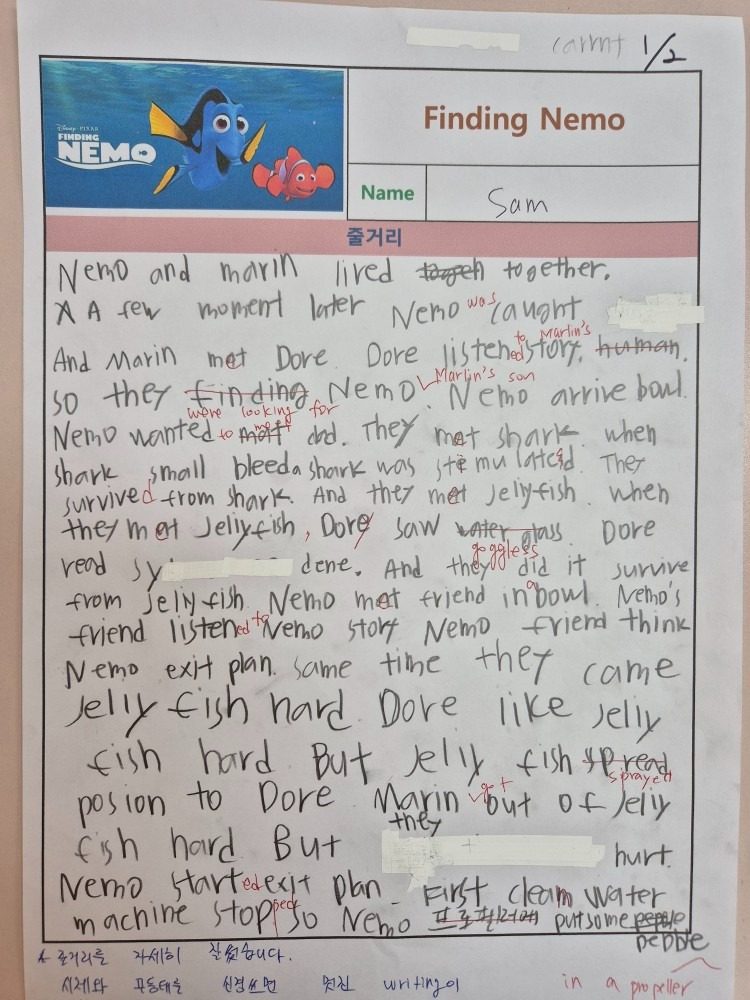 1/2
Disney·PIXAR
FINDING
NEMO
Finding Nemo
Name Sam
줄거리
Nemo and marin lived togeh together.
A few moment later Nemo was caught
And Marin met Dore. Dore listened to Marlin's story. human.
so they finding were looking for Nemo Marlin's son. Nemo arrive bowl.
Nemo wanted to meet dad. They met shark. when
shark small bleed a shark was stimulated. They
survived from shark. And they met Jellyfish. when
they met Jellyfish, Dore saw water glass goggless. Dore
read sy dene. And they did it survive
from Jellyfish. Nemo met friend in a bowl. Nemo's
friend listened to Nemo story Nemo friend think
Nemo exit plan. same time they came
Jelly fish hard. Dore like Jelly
fish hard But Jelly fish spread sprayed
posion to Dore Marin got out of Jelly
fish hard But they hurt.
Nemo started exit plan. First clean water
machine stopped so Nemo 프로펠러에 put some people pebble
in a propeller
* 줄거리를 자세히 잘 썼습니다.
시제와 수동태를 신경쓰면 멋진 writing이